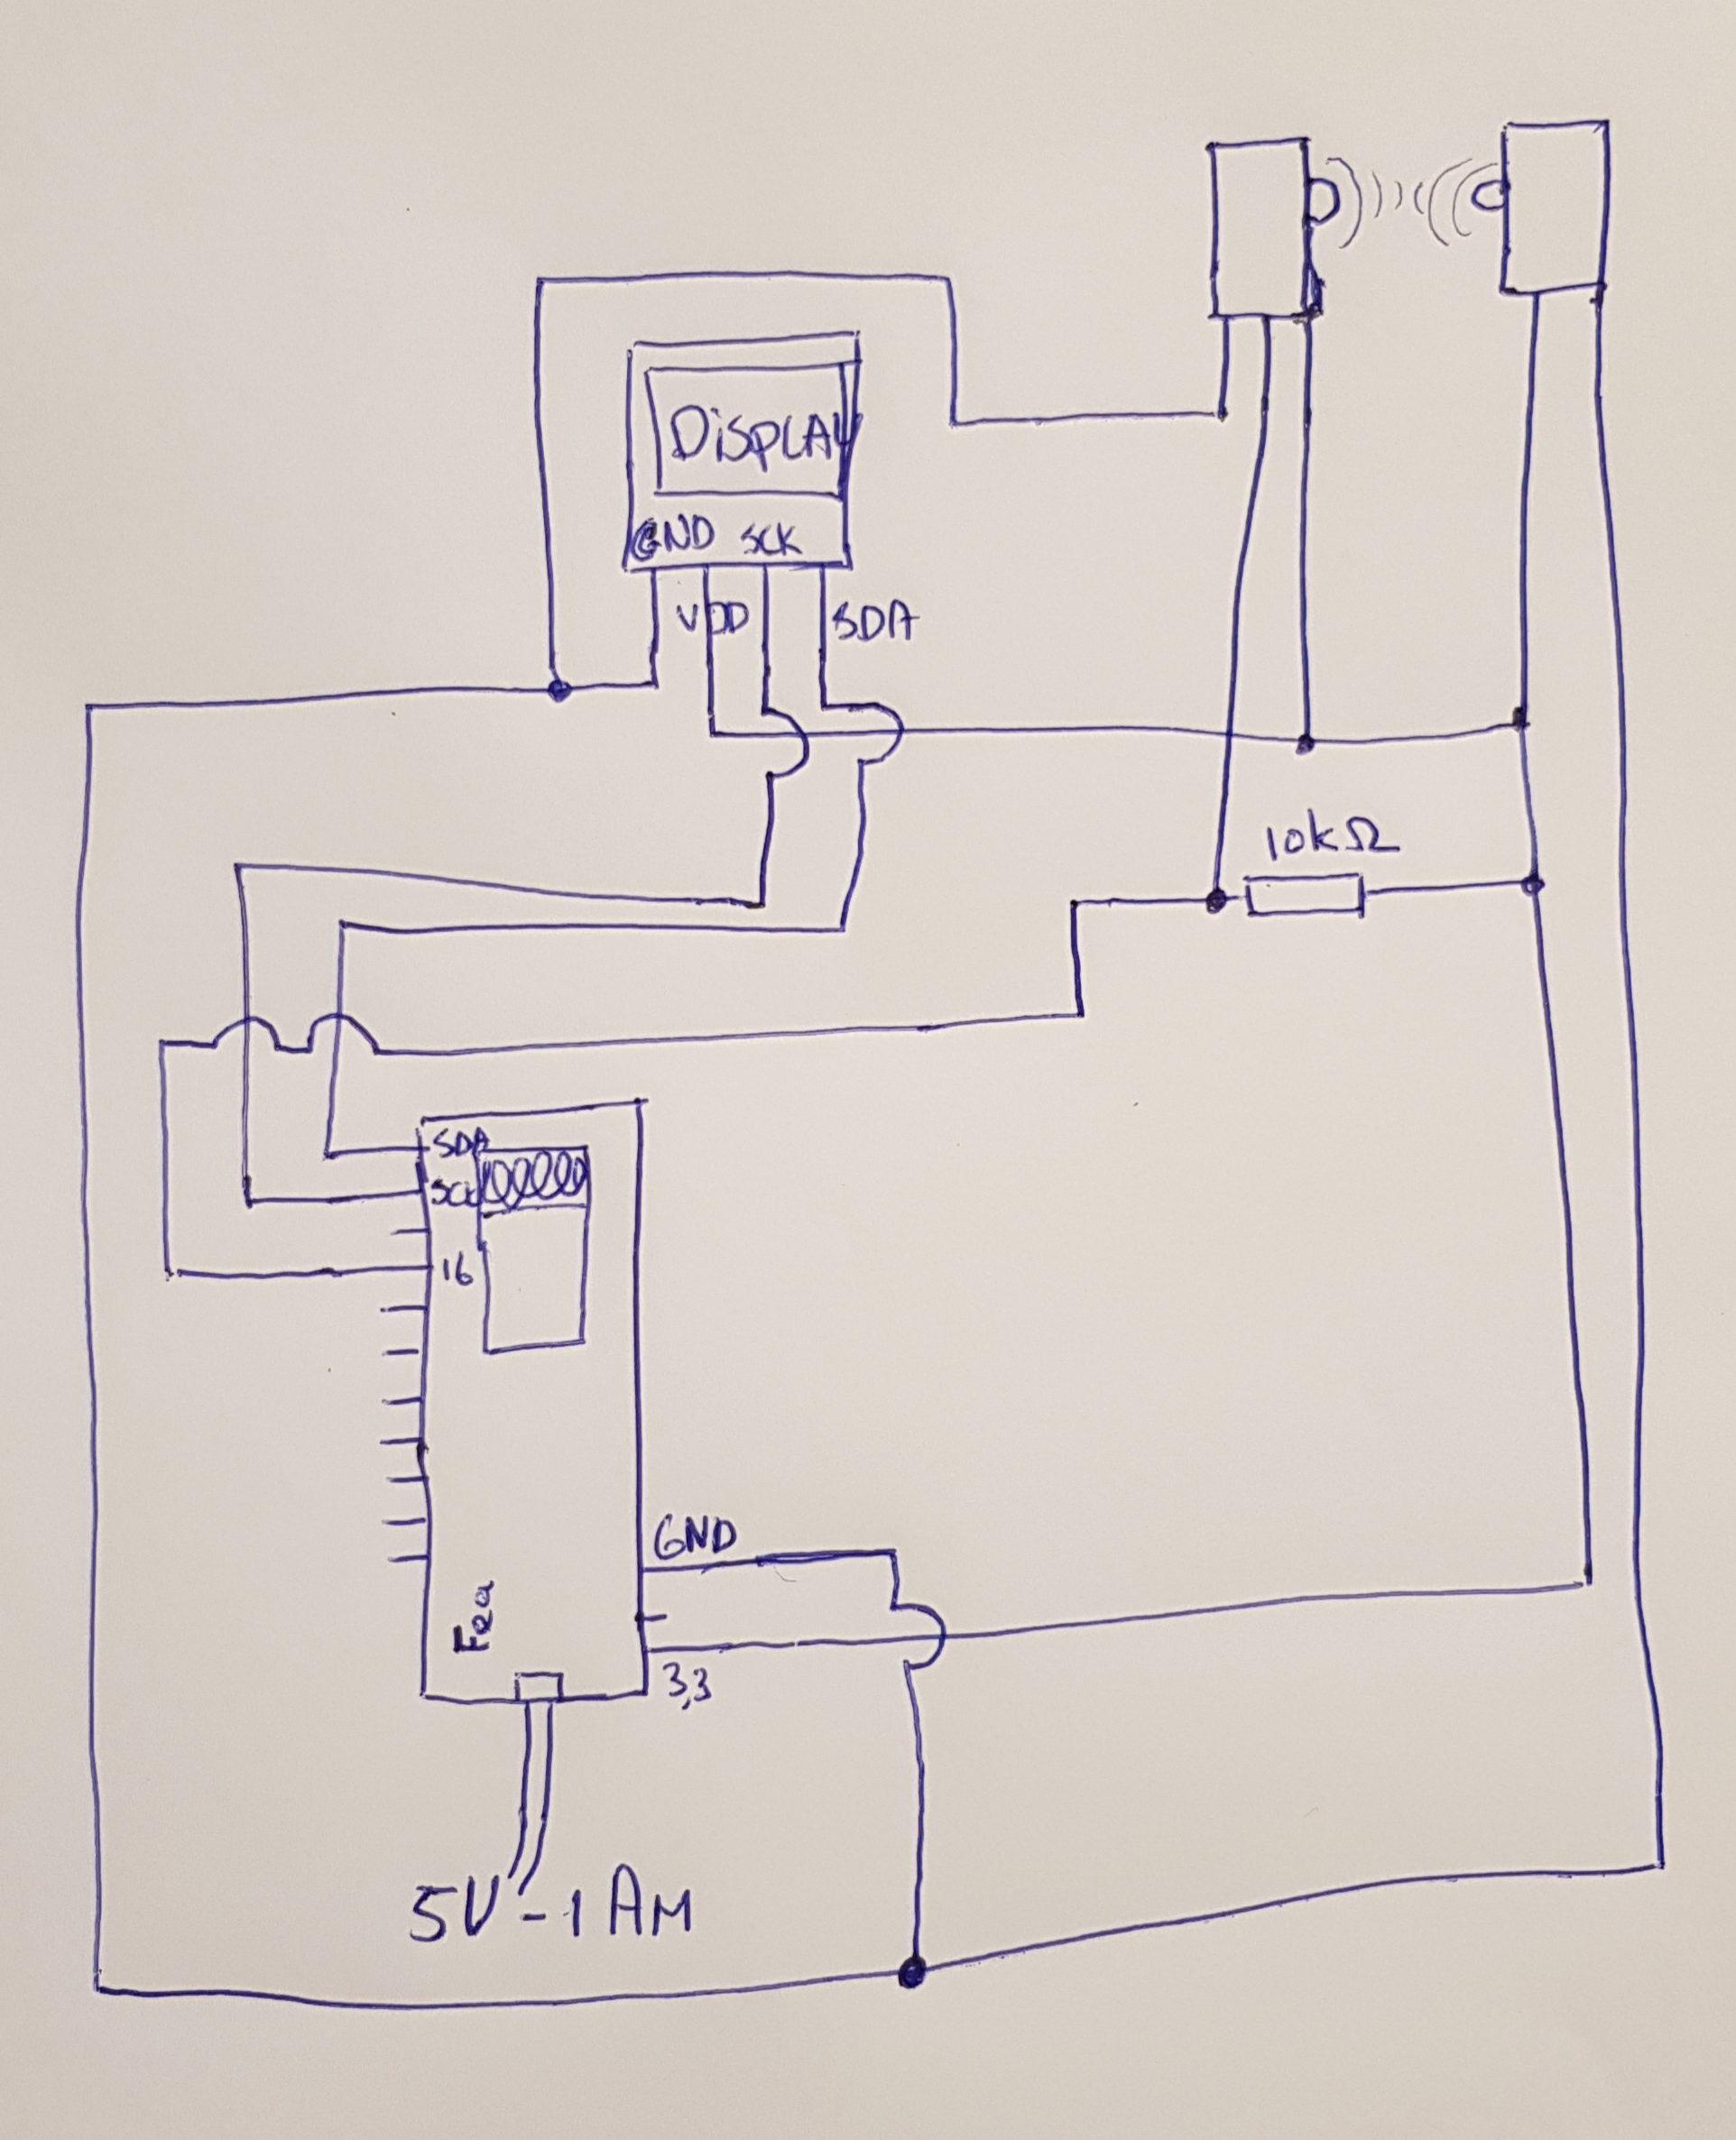 DiSPLAY
GND SCK
VDD SDA
10kΩ
SDA
SCL
16
GND
3,3
5V-1AM